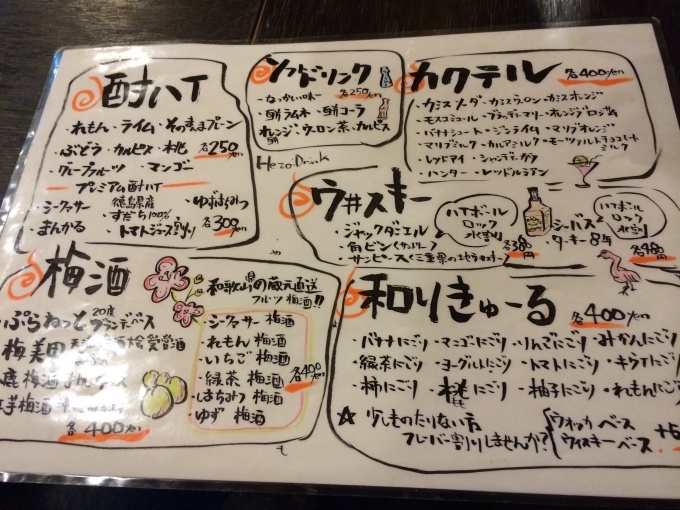 酎ハイ
・れもん・ライム・そのままプレーン
・ぶどう・カルピス・桃 各250yen
・グレープフルーツ ・マンゴー
プレミアム酎ハイ
・シークァーサー ・徳島産すだち100% ・ゆずはちみつ
・まんかる ・トマトジュース割り 各300yen
ソフトドリンク
各250yen
・なっかい味 ・
・酎ラムネ ・酎コーラ
オレンジ・ウーロン茶・カルピス
Hezo Drink
カクテル 各400yen
・カシスソーダ・カシスウーロン・カシスオレンジ
・モスコミュール・ブラッディーマリー・オレンジブロッサム
・バナナシュート・ジンライム・マリブオレンジ
・マリブミルク・カルアミルク・モーツァルトチョコレートミルク
・レッドアイ ・シャンディガフ
・ハンター ・レッドルシアン
ウ井スキー
・ジャックダニエル
・角ビン(サントリー)
・サンピース(三重県の地ウイスキー)
ハイボール
ロック
水割り
各380円
シーバス
ターキー8年
ハイボール
ロック
水割り
各480円
梅酒
和歌山県の蔵元直送
フルーツ梅酒!!
・ぷらねっと 20度 ブランデーベース
・梅美田
鹿梅酒
芋梅酒
各400yen
・シークァーサー 梅酒
・れもん 梅酒
・いちご 梅酒
・緑茶 梅酒
・はちみつ 梅酒
・ゆず 梅酒
各400yen
和りきゅーる 各400yen
・バナナにごり ・マンゴーにごり ・りんごにごり ・みかんにごり
・緑茶にごり ・ヨーグルトにごり ・トマトにごり ・キウイにごり
・柿にごり ・桃にごり ・柚子にごり ・れもんにごり
☆少しものたりない方
フレーバー割りしませんか?
ウォッカ ベース
ウイスキー ベース